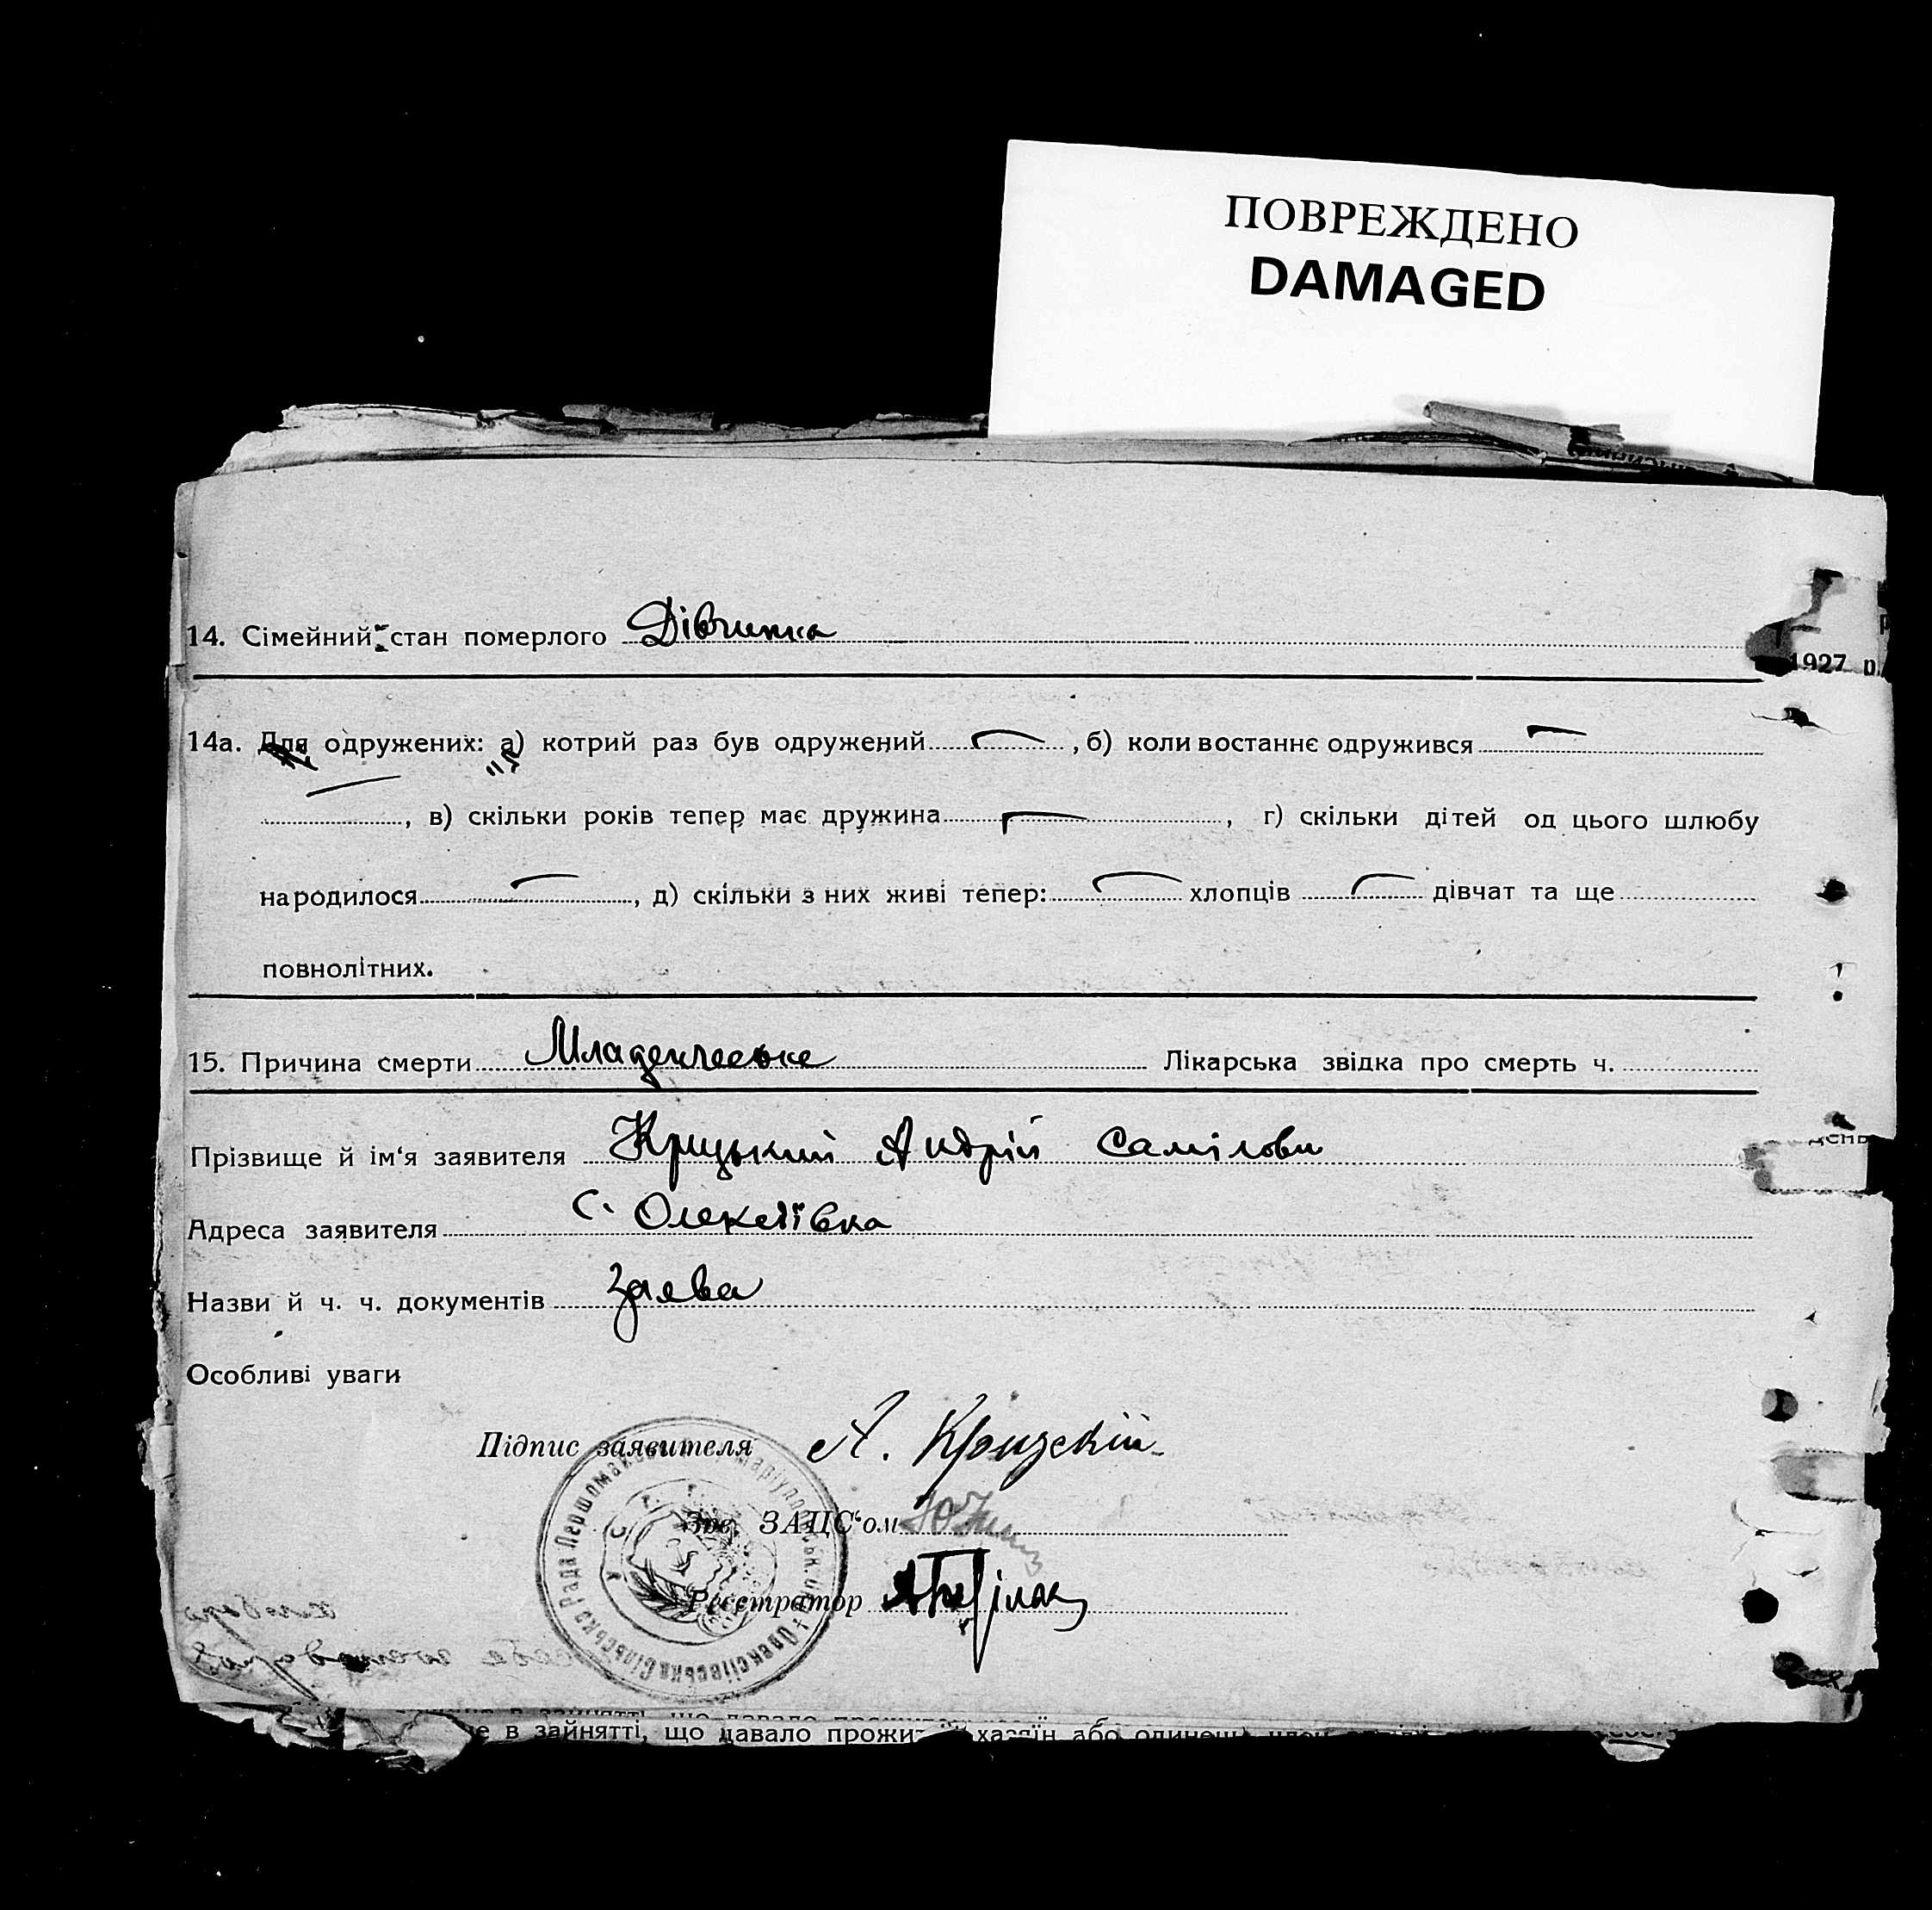 ПОВРЕЖДЕНО
DAMAGED
14. Сімейний стан померлого Дівчинка
1927 р
14а. Для одружених: а) котрий раз був одружений , б) коли востаннє одружився
, в) скільки років тепер має дружина , г) скільки дітей од цього шлюбу
народилося , д) скільки з них живі тепер: хлопців дівчат та ще
повнолітних.
15. Причина смерти Младенческе Лікарська звідка про смерть ч.
Прізвище й ім'я заявителя Крицький Андрій Самілови
день
Адреса заявителя С. Олексіївка
Назви й ч. ч. документів Заява
Особливі уваги
Підпис заявителя А. Крицскій
Зав. ЗАЦС'ом
Реєстратор
Олексіївська Сільська Рада Першомайськ Маріупольськ. окр.
У. С. Р. Р.
е в зайнятті, що давало прожи хазяїн або одинець, член